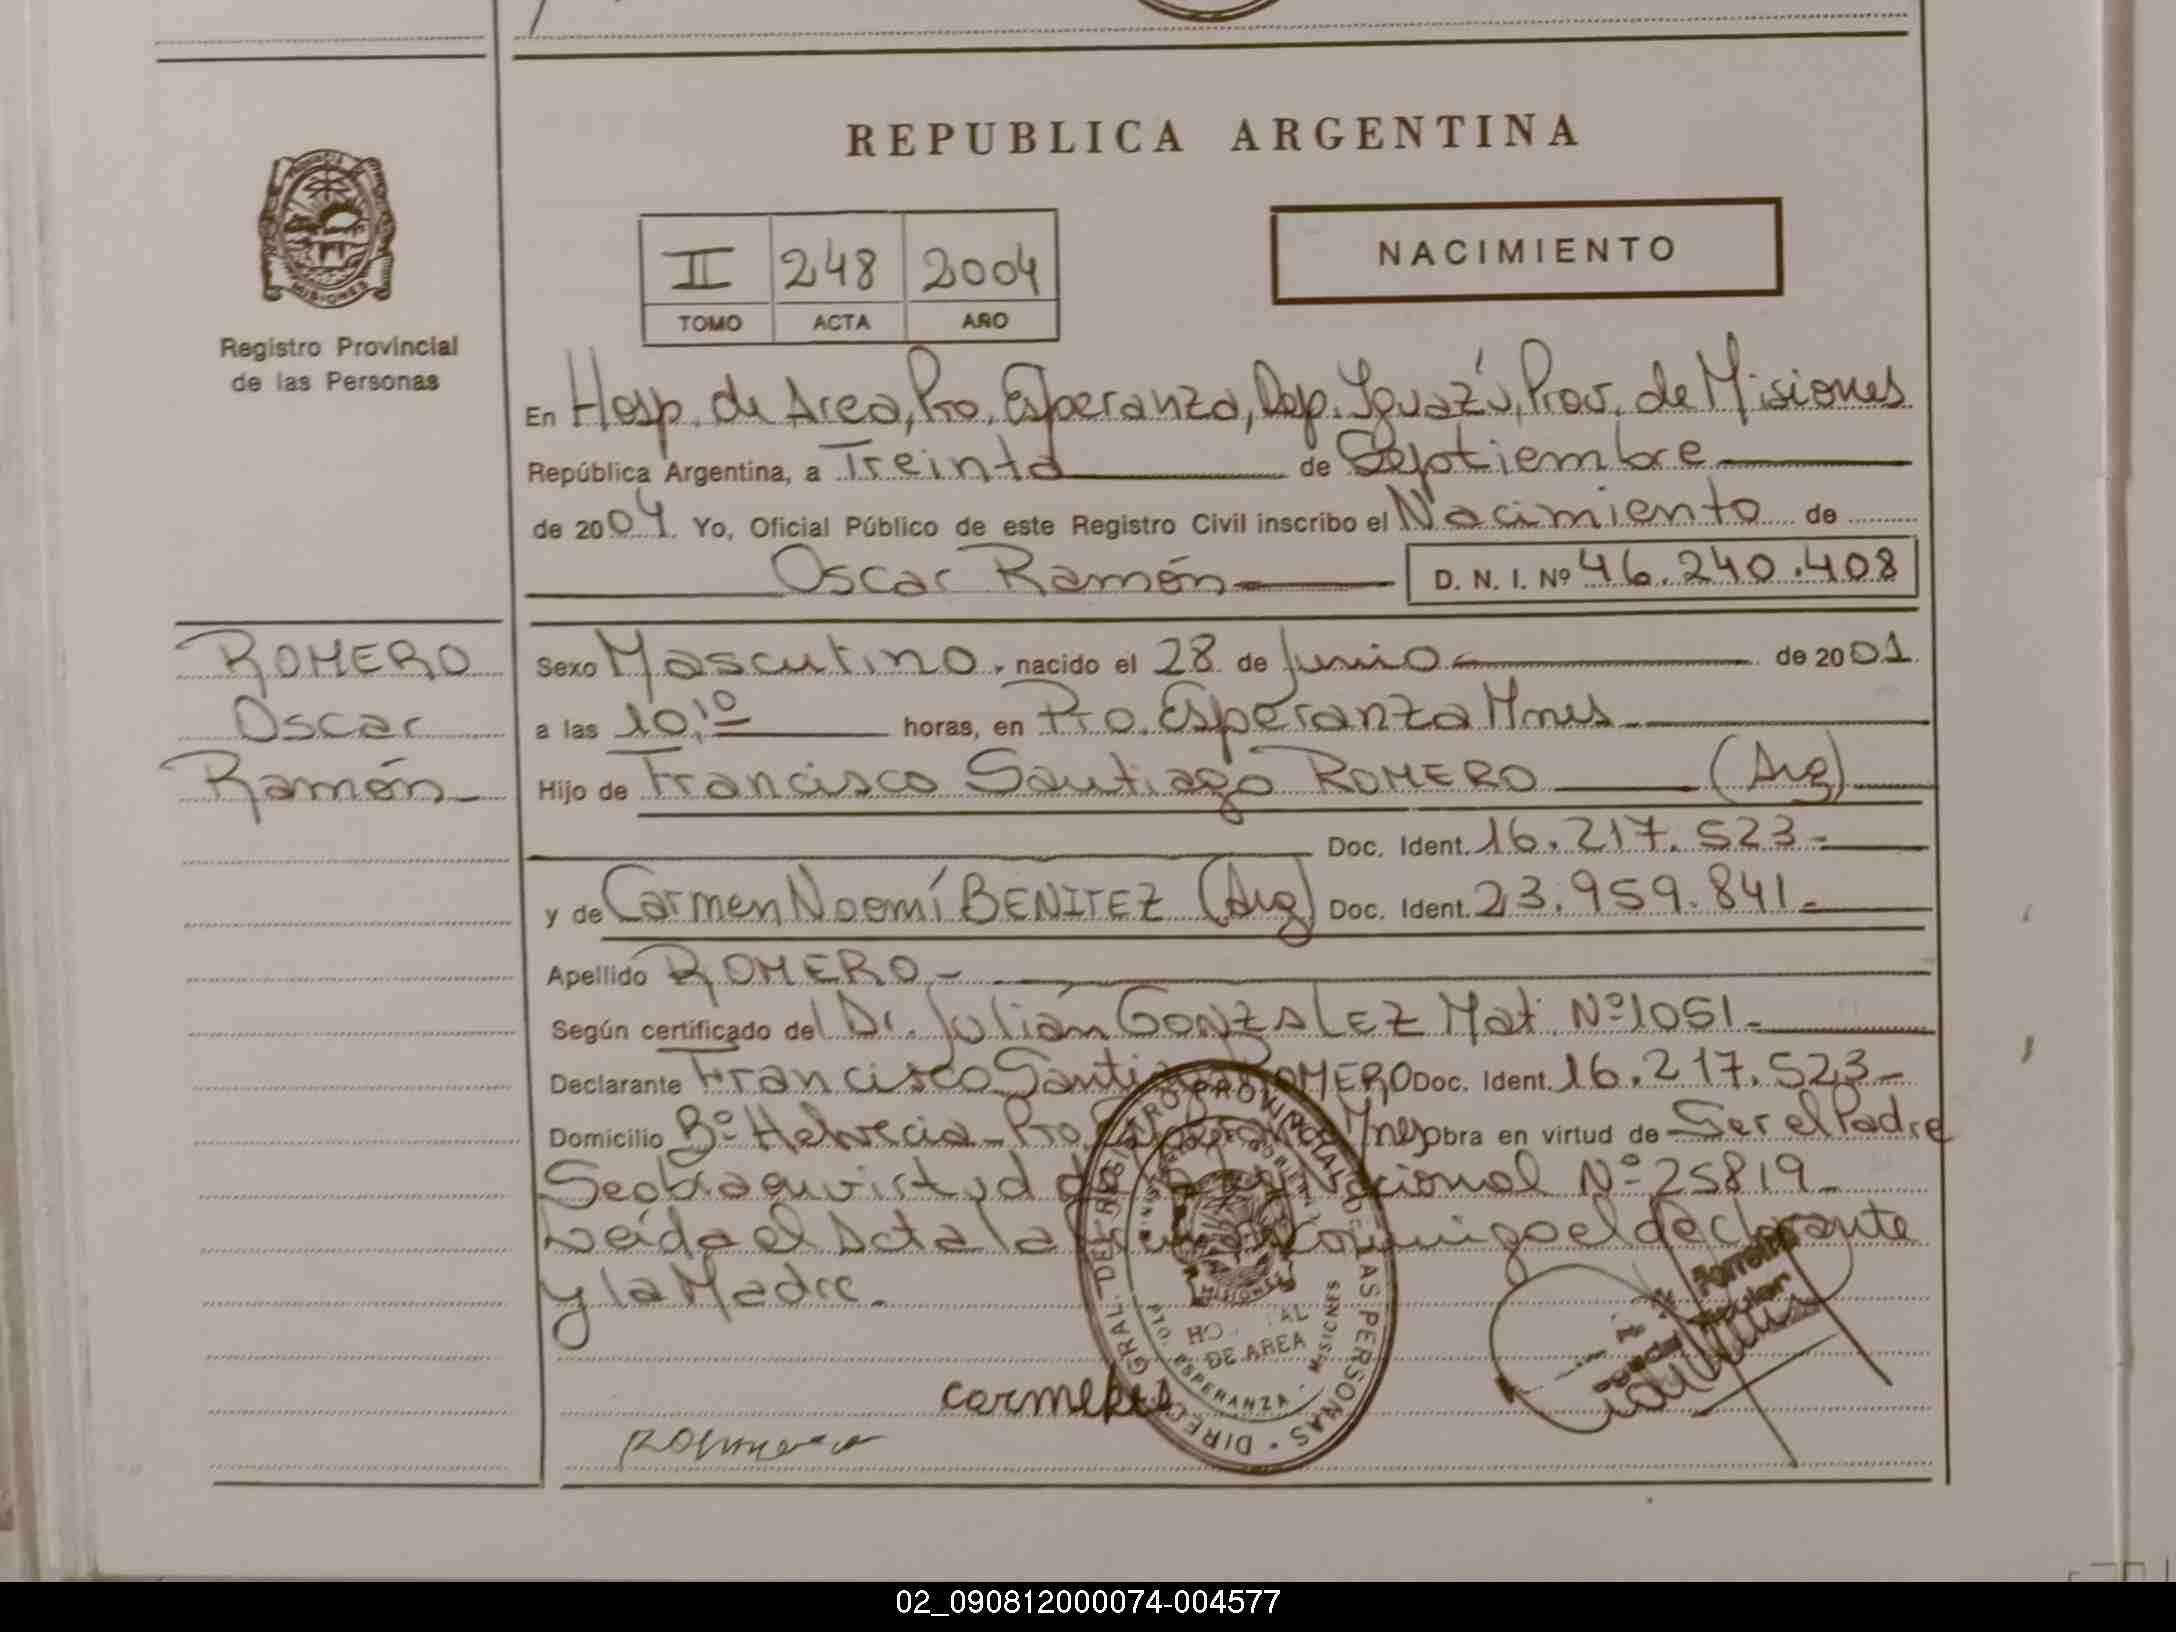 REPUBLICA ARGENTINA
NACIMIENTO
II 248 2004
TOMO ACTA AÑO
PROVINCIA
MISIONES
Registro Provincial
de las Personas
En Hosp. de Area, Pto. Esperanza, Dep. Iguazú, Prov. de Misiones
República Argentina, a Treinta de Septiembre
de 2004 Yo, Oficial Público de este Registro Civil inscribo el Nacimiento de
Oscar Ramón D. N. I. Nº 46.240.408
ROMERO
Oscar
Ramón
Sexo Masculino. nacido el 28 de Junio de 2001
a las 10,10 horas, en Pto. Esperanza Mnes
Hijo de Francisco Santiago ROMERO (Arg)
Doc. Ident. 16.217.523
y de Carmen Noemí BENITEZ (Arg) Doc. Ident. 23.959.841
Apellido ROMERO
Según certificado del Dr. Julián GONZALEZ Mat. Nº 1051
Declarante Francisco Santiago ROMERO Doc. Ident. 16.217.523
Domicilio Bº Helvecia Pto. Esperanza Mnes obra en virtud de Ser el Padre
Se obra en virtud de la Ley Nacional Nº 25819
Leída el Acta la firman Conmigo el declarante
y la Madre.
DIREC. GRAL. DEL REGISTRO PROVINCIAL DE LAS PERSONAS
MISIONES
DE AREA
PTO. ESPERANZA - MISIONES
02_090812000074-004577